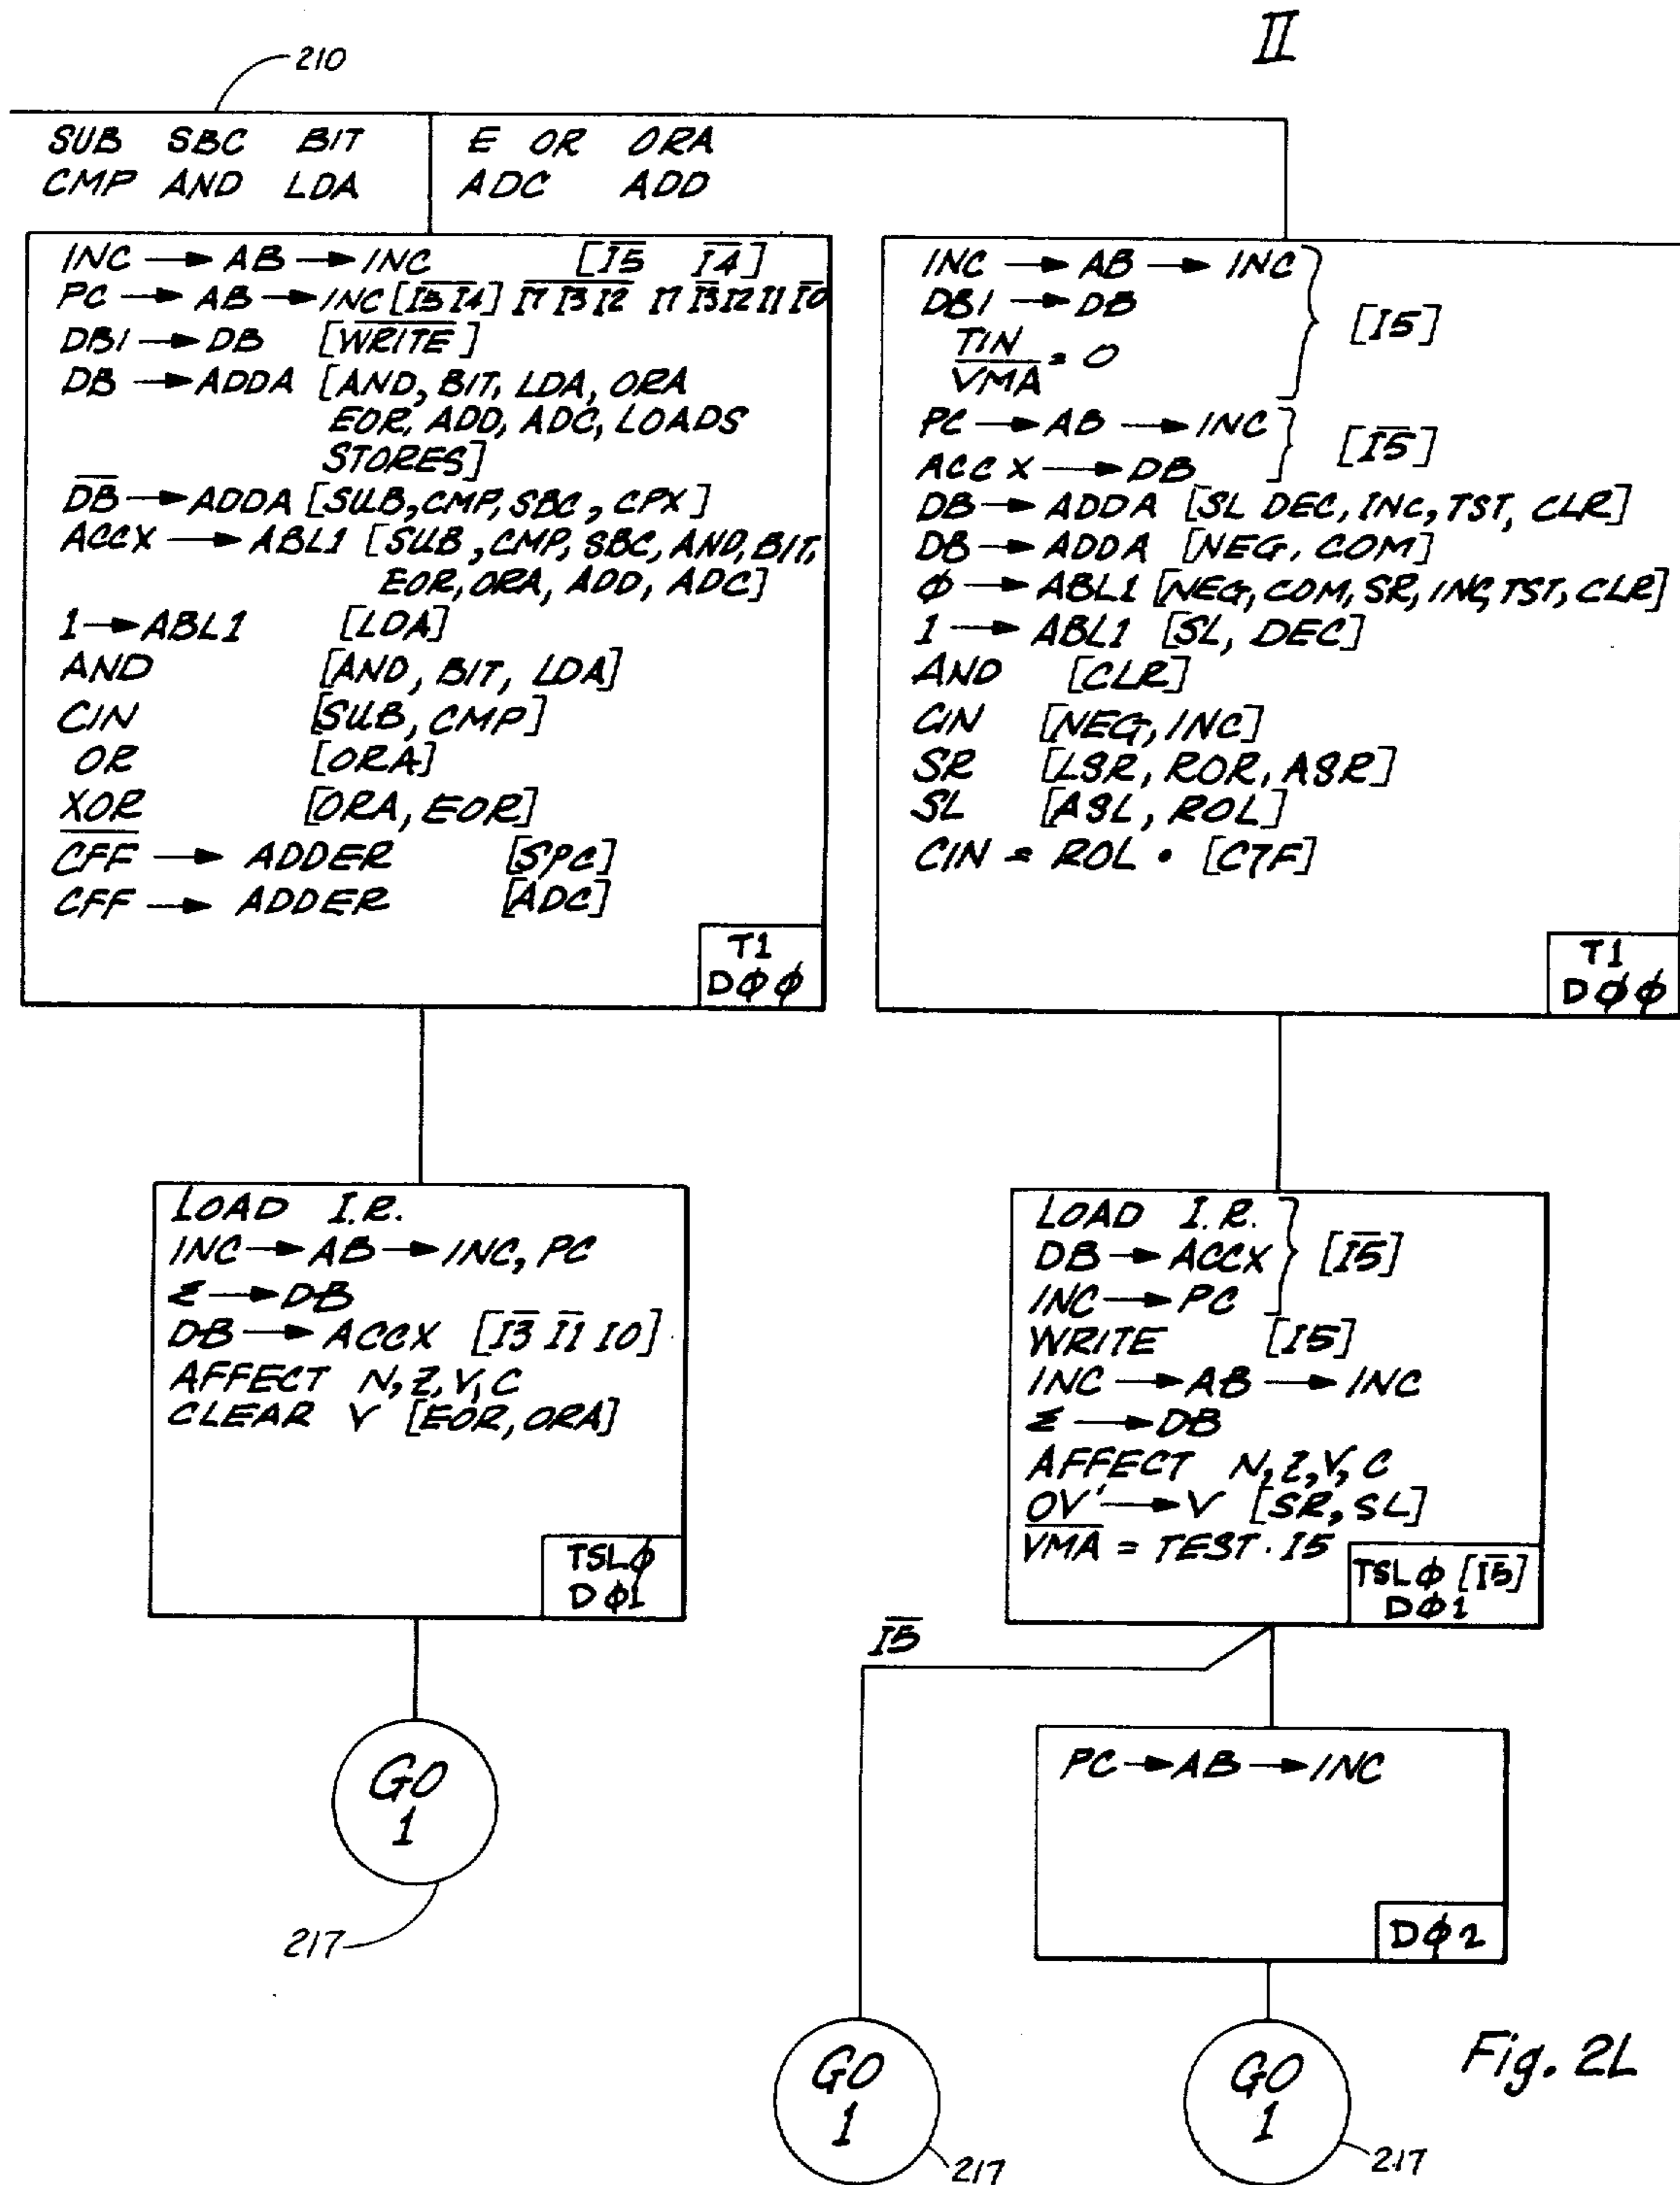 II
210
SUB SBC BIT
CMP AND LDA
E OR ORA
ADC ADD
INC → AB → INC [I̅5̅ I̅4̅]
PC → AB → INC [I̅5̅ I̅4̅] I̅7̅ I̅3̅ I̅2̅ I7 I̅3̅ I2 I1 I̅0̅
DB1 → DB [W̅R̅I̅T̅E̅]
DB → ADDA [AND, BIT, LDA, ORA
EOR, ADD, ADC, LOADS
STORES]
D̅B̅ → ADDA [SUB, CMP, SBC, CPX]
ACCX → ABL1 [SUB, CMP, SBC, AND, BIT,
EOR, ORA, ADD, ADC]
1 → ABL1 [LDA]
AND [AND, BIT, LDA]
CIN [SUB, CMP]
OR [ORA]
XOR [ORA, EOR]
C̅F̅F̅ → ADDER [SPC]
CFF → ADDER [ADC]
T1
DØØ
INC → AB → INC
DB1 → DB
TIN
V̅M̅A̅ = 0
[I5]
PC → AB → INC
ACCX → DB
[I̅5̅]
DB → ADDA [SL DEC, INC, TST, CLR]
DB → ADDA [NEG, COM]
Ø → ABL1 [NEG, COM, SR, INC, TST, CLR]
1 → ABL1 [SL, DEC]
AND [CLR]
CIN [NEG, INC]
SR [LSR, ROR, ASR]
SL [ASL, ROL]
CIN = ROL • [C7F]
T1
DØØ
LOAD I.R.
INC → AB → INC, PC
Σ → DB
DB → ACCX [I̅3̅ I̅1̅ I0]
AFFECT N, Z, V, C
CLEAR V [EOR, ORA]
TSLØ
DØ1
GO
1
217
LOAD I.R.
DB → ACCX
INC → PC
[I̅5̅]
WRITE [I5]
INC → AB → INC
Σ → DB
AFFECT N, Z, V, C
OV' → V [SR, SL]
V̅M̅A̅ = TEST · I5
TSLØ [I̅5̅]
DØ1
I̅5̅
PC → AB → INC
DØ2
GO
1
217
GO
1
217
Fig. 2L